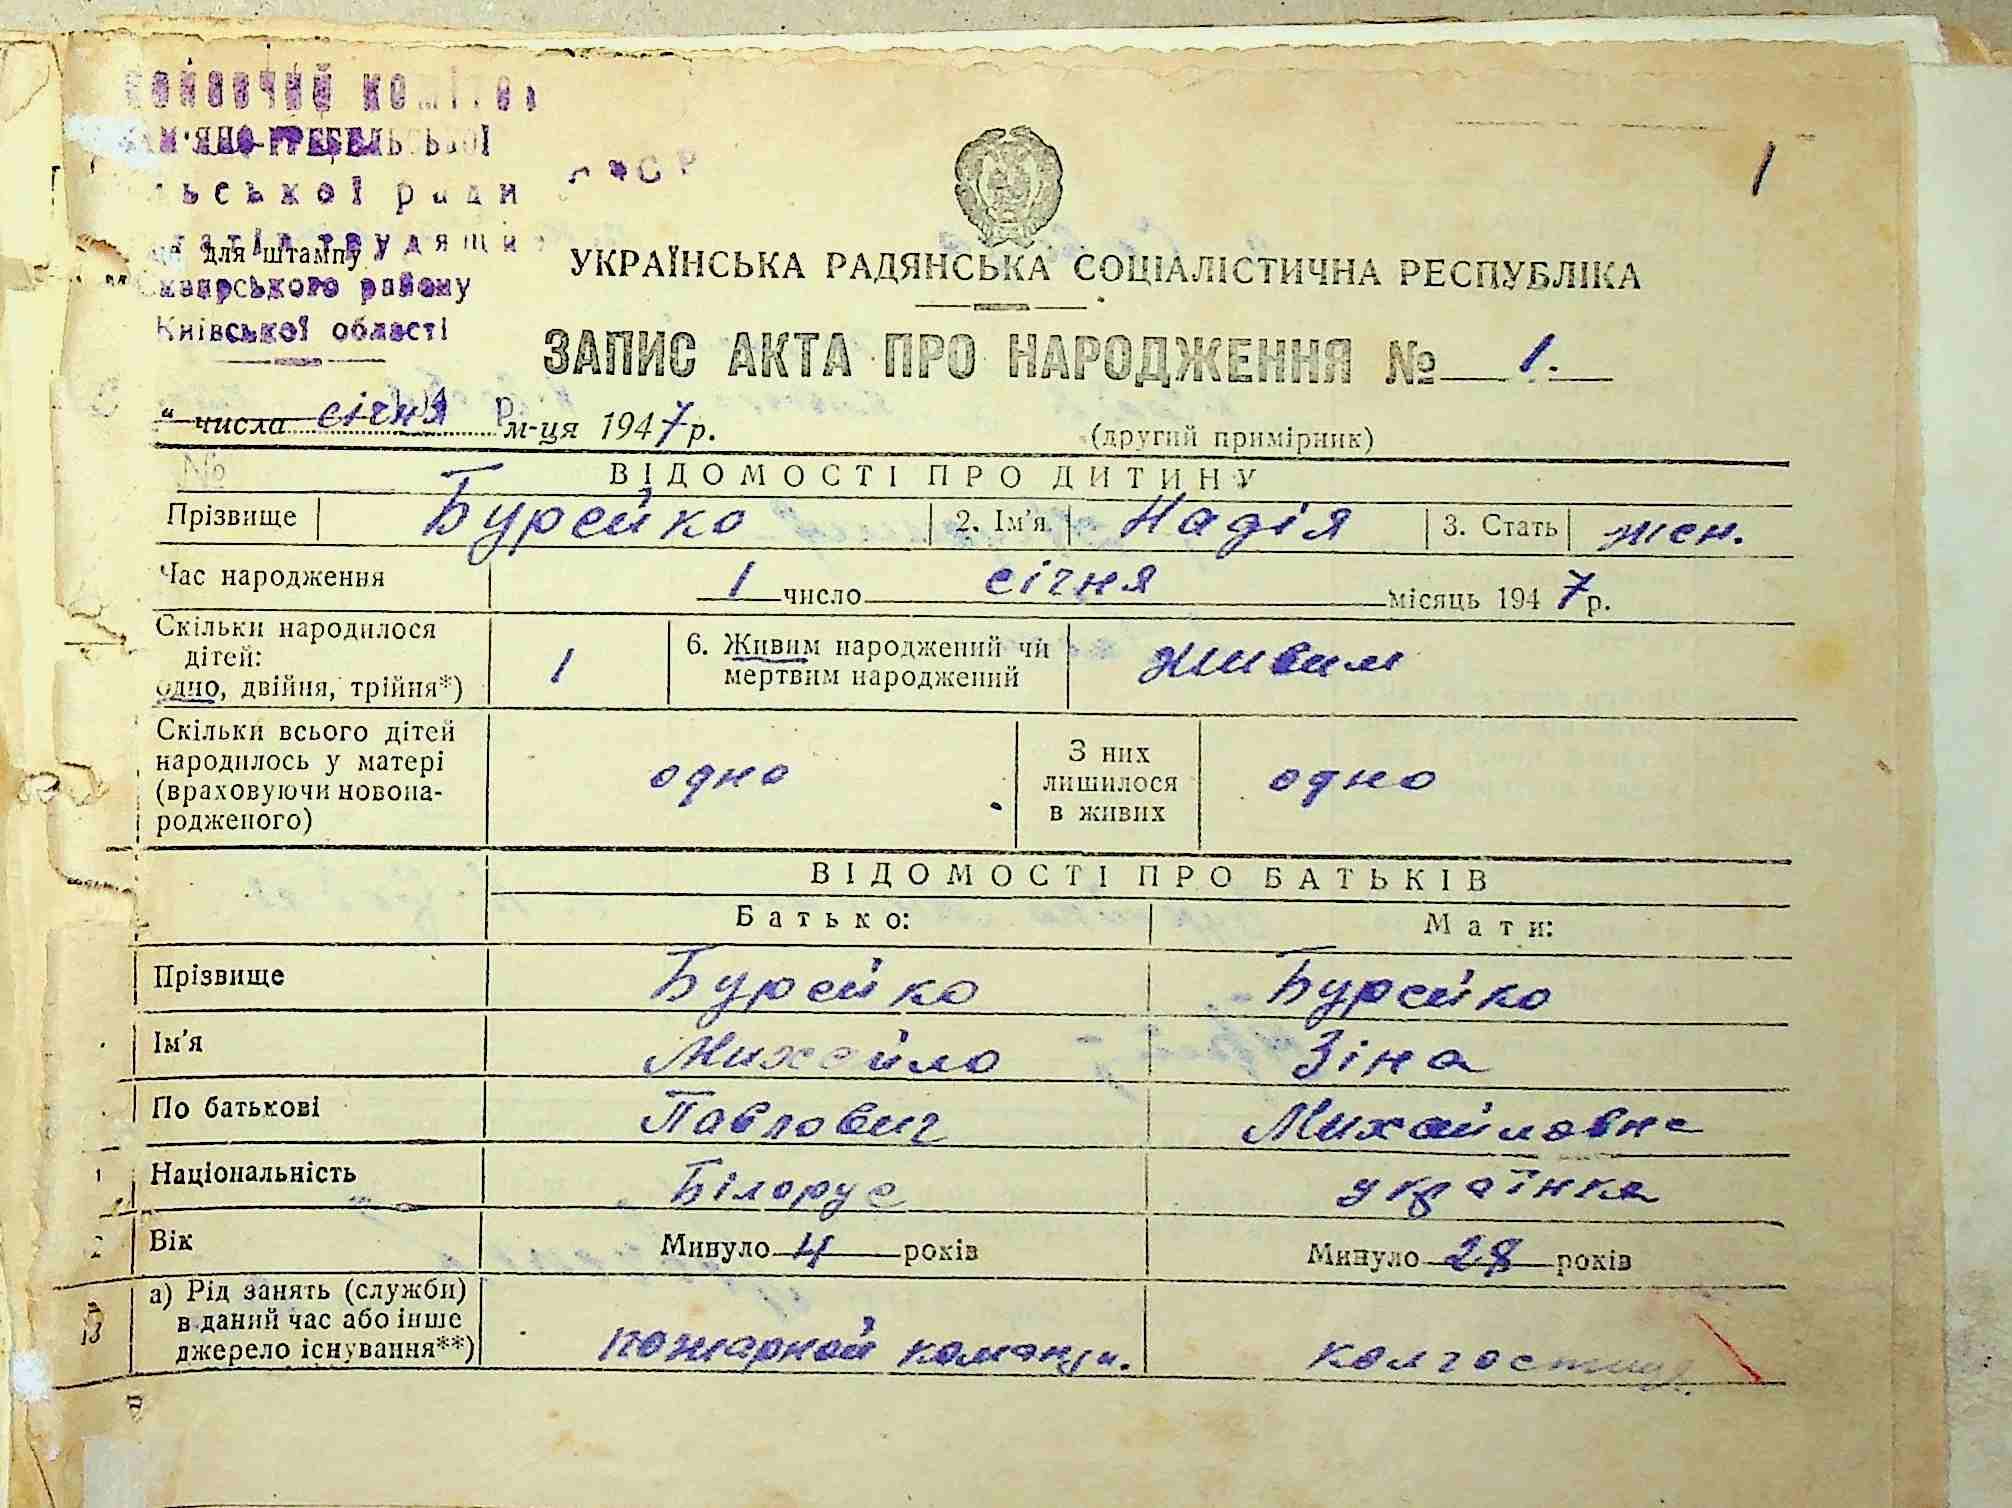 1
комітет
ської ради
СРСР
для штампу
Сквирського району
Київської області
УКРАЇНСЬКА РАДЯНСЬКА СОЦІАЛІСТИЧНА РЕСПУБЛІКА
ЗАПИС АКТА ПРО НАРОДЖЕННЯ № 1.
" числа січня м-ця 1947 р.
(другий примірник)
ВІДОМОСТІ ПРО ДИТИНУ
Прізвище Бурейко 2. Ім'я Надія 3. Стать жен.
Час народження 1 число січня місяць 1947 р.
Скільки народилося
дітей:
одно, двійня, трійня*) 1 6. Живим народжений чи
мертвим народжений живим
Скільки всього дітей
народилось у матері
(враховуючи новона-
родженого) одно
З них
лишилося
в живих одно
ВІДОМОСТІ ПРО БАТЬКІВ
Батько: Мати:
Прізвище Бурейко Бурейко
Ім'я Михайло Зіна
По батькові Павлович Михайловна
Національність Білорус українка
Вік Минуло років Минуло 28 років
а) Рід занять (служби)
в даний час або інше
джерело існування**) пожарной команди.